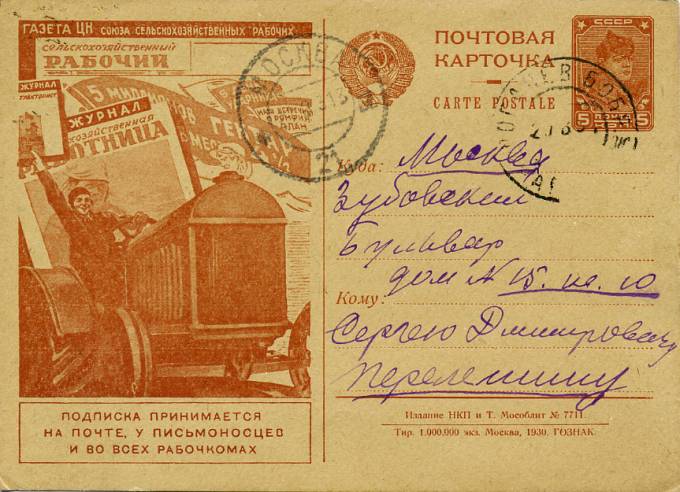 ГАЗЕТА ЦК СОЮЗА СЕЛЬСКОХОЗЯЙСТВЕННЫХ РАБОЧИХ
СЕЛЬСКОХОЗЯЙСТВЕННЫЙ
РАБОЧИЙ
ЖУРНАЛ
ЖУРНАЛ
5 МИЛЛИОНОВ
МОСКВА
21
ПОЧТОВАЯ
КАРТОЧКА
CARTE POSTALE
СССР
5 5
Куда: Москва
Зубовский
Бульвар
дом № 15. кв. 10
Кому:
Сергею Дмитровичу
Перелешину
Издание НКП и Т. Мособлит № 7711.
Тир. 1.000.000 экз. Москва, 1930. ГОЗНАК.
ПОДПИСКА ПРИНИМАЕТСЯ
НА ПОЧТЕ, У ПИСЬМОНОСЦЕВ
И ВО ВСЕХ РАБОЧКОМАХ